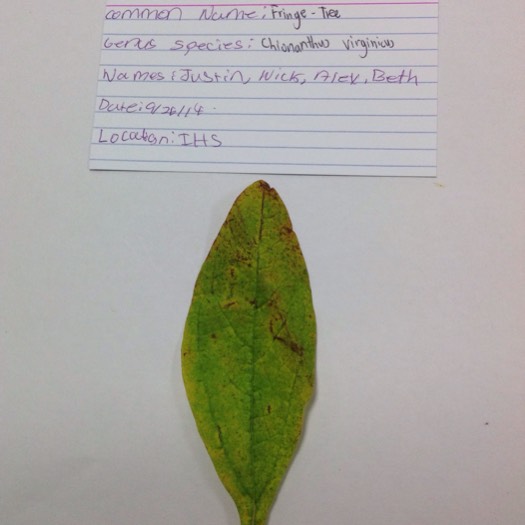 common Name: Fringe-Tree
Genus species: Chionanthus virginicus
Names: Justin, Nick, Alex, Beth
Date: 9/26/14
Location: IHS